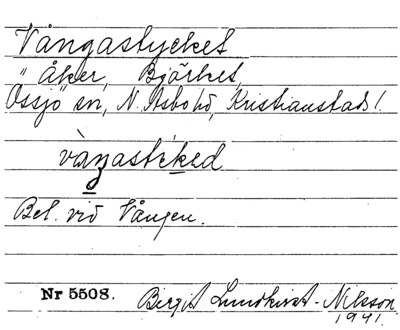 Vångastycket
" åker, Björket,
Össjö sn, N. Åsbo hd, Kristianstads l.
vàŋastíked
Bel. vid Vången.
Nr 5508. Birgit Lundkvist-Nilsson
1941.